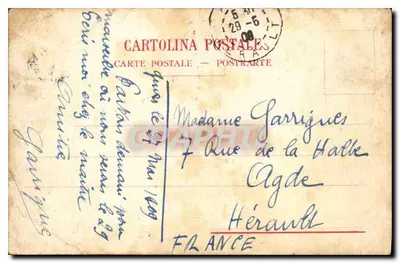 CARTOLINA POSTALE
CARTE POSTALE – POSTKARTE
5
29-5
09
HÉRAULT
le 27 Mai 1909
Partons demain pour
Marseille où nous serons le 29
Écris moi chez le maître
Amitié
Garrigue
Madame Garrigues
7 Rue de la Halle
Agde
Hérault
FRANCE